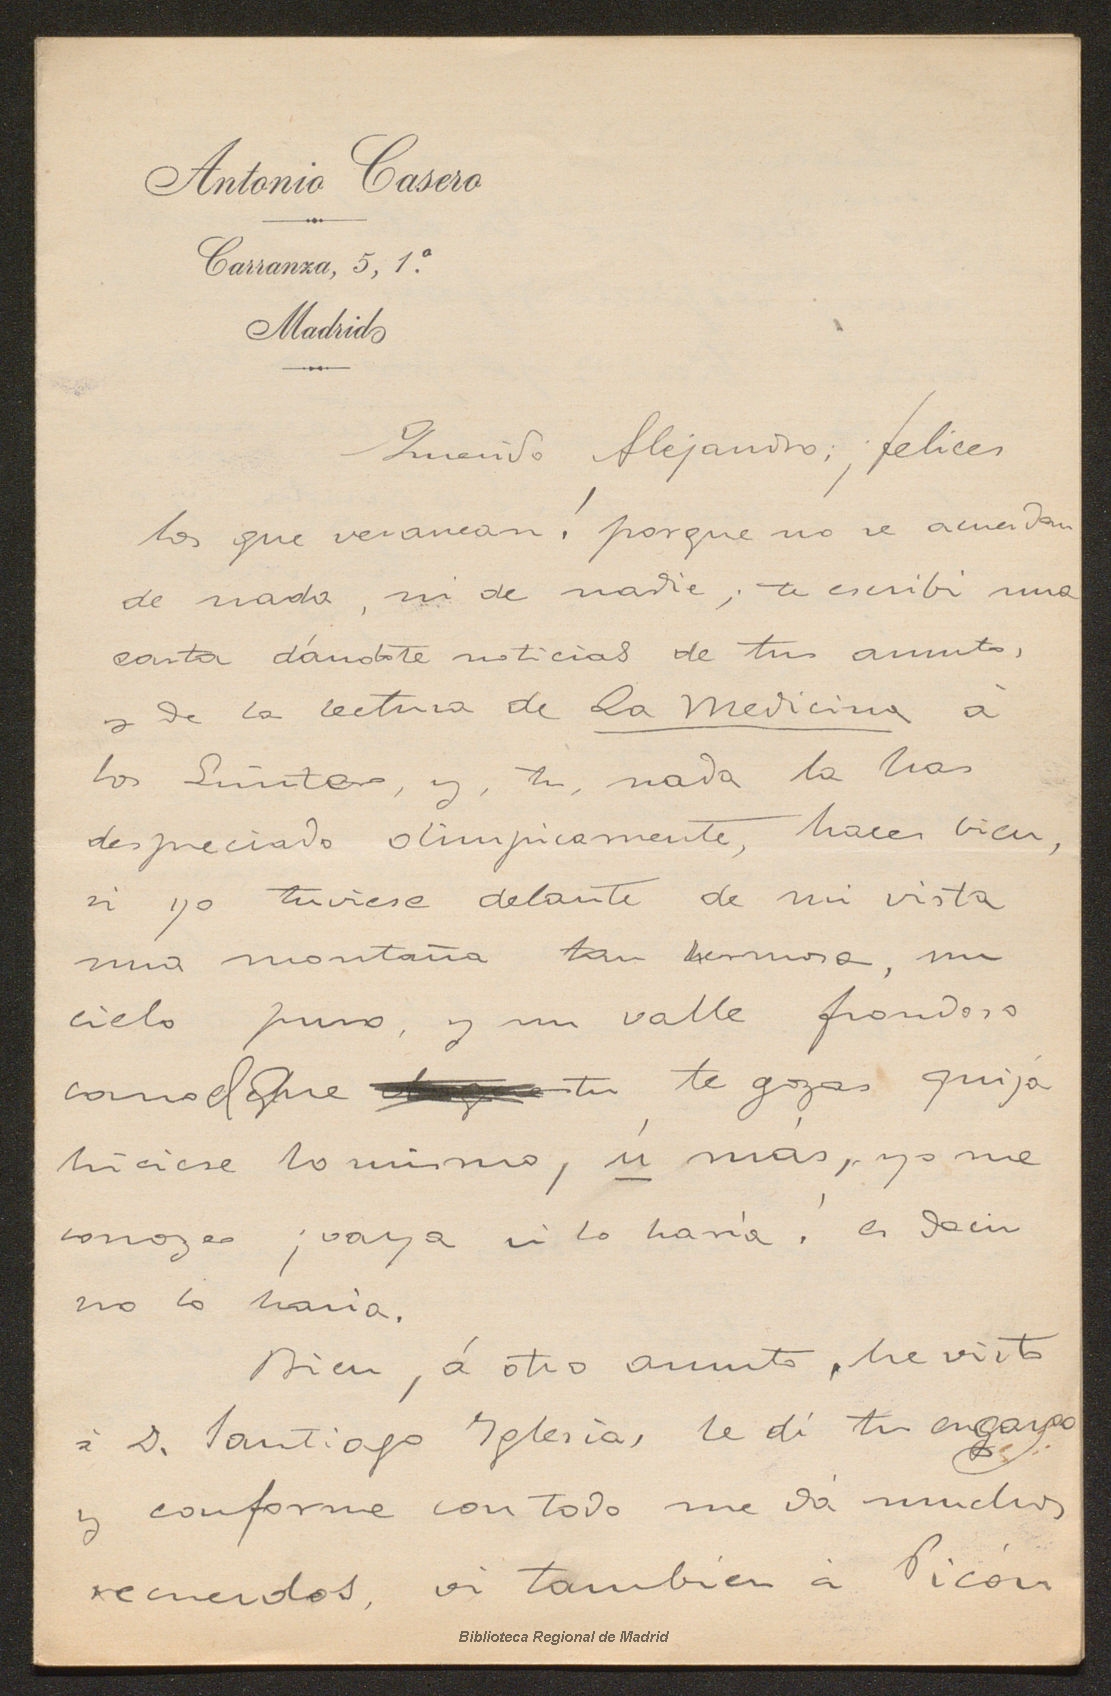 Antonio Casero
Carranza, 5, 1.º
Madrid
Querido Alejandro; ¡felices
los que veranean! porque no se acuerdan
de nada, ni de nadie; te escribí una
carta dándote noticias de tus asuntos,
y de la lectura de La Medicina à
los , y, tu, nada la has
despreciado olimpicamente, haces bien,
si yo tuviese delante de mi vista
una montaña tan hermosa, un
cielo puro, y un valle frondoso
como el que tu te gozas quizá
hiciese lo mismo, ú más, yo me
conozco ¡vaya si lo haría! es decir
no lo haria.
Bien, á otro asunto, he visto
à D. Santiago Iglesias, le dí tu encargo
y conforme con todo me dá muchos
recuerdos, vi también à Picón
Biblioteca Regional de Madrid